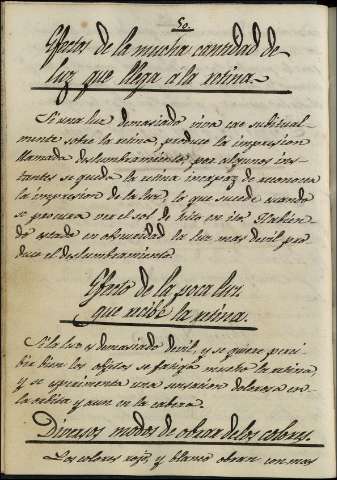 50.
Efectos de la mucha cantidad de
luz que llega a la retina.
Si una luz demasiado viva cae subitual-
mente sobre la retina, produce la impresion
llamada deslumbramiento, por algunos ins-
tantes se queda la retina incapaz de reconocer
la impresion de la luz, lo que sucede cuando
se procura ver el sol de hito en ito. Habien-
do estado en obscuridad la luz mas devil pro
duce el deslumbramiento.
Efecto de la poca luz
que recibe la retina.
Si la luz es demasiado devil, y se quiere perci-
bir bien los objetos se fatiga mucho la retina
y se esperimenta una sensacion dolorosa en
la orbita y aun en la cabeza.
Diversos modos de obrar de los colores.
Los colores rojo, y blanco obran con mas